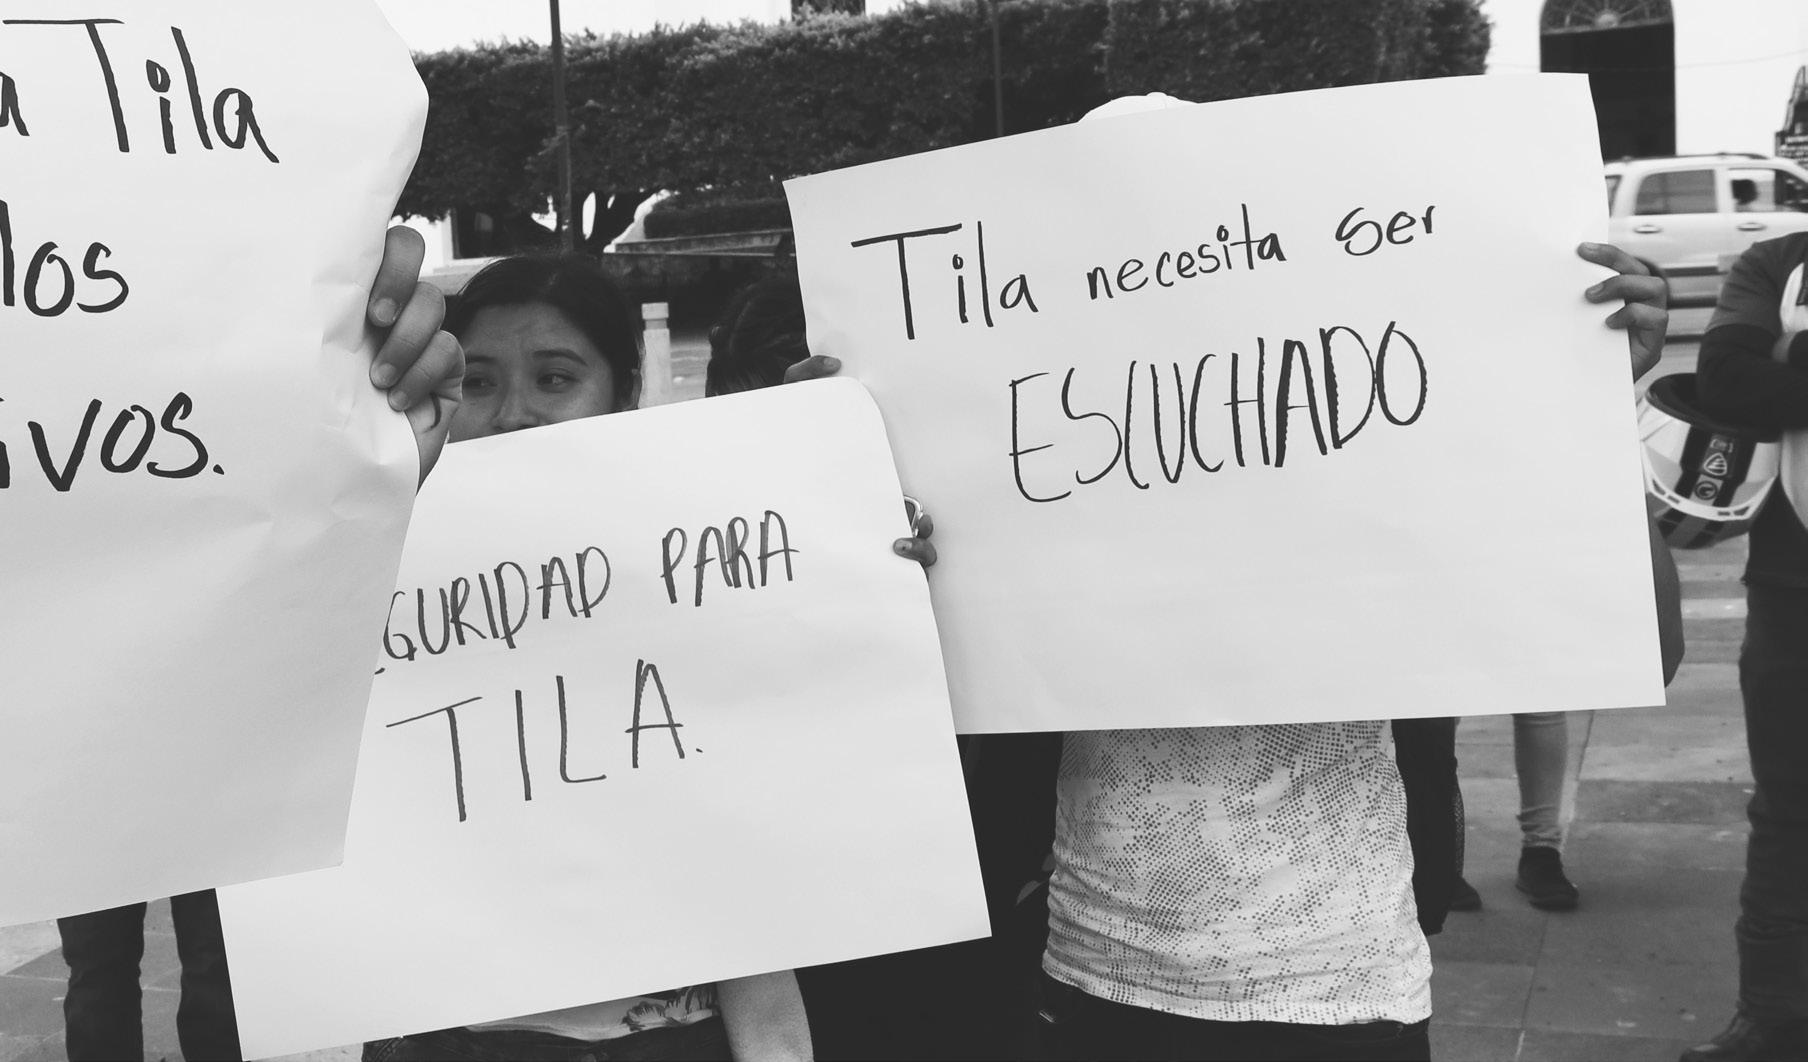 Tila
los
ivos.
GURIDAD PARA
TILA.
Tila necesita ser
ESCUCHADO